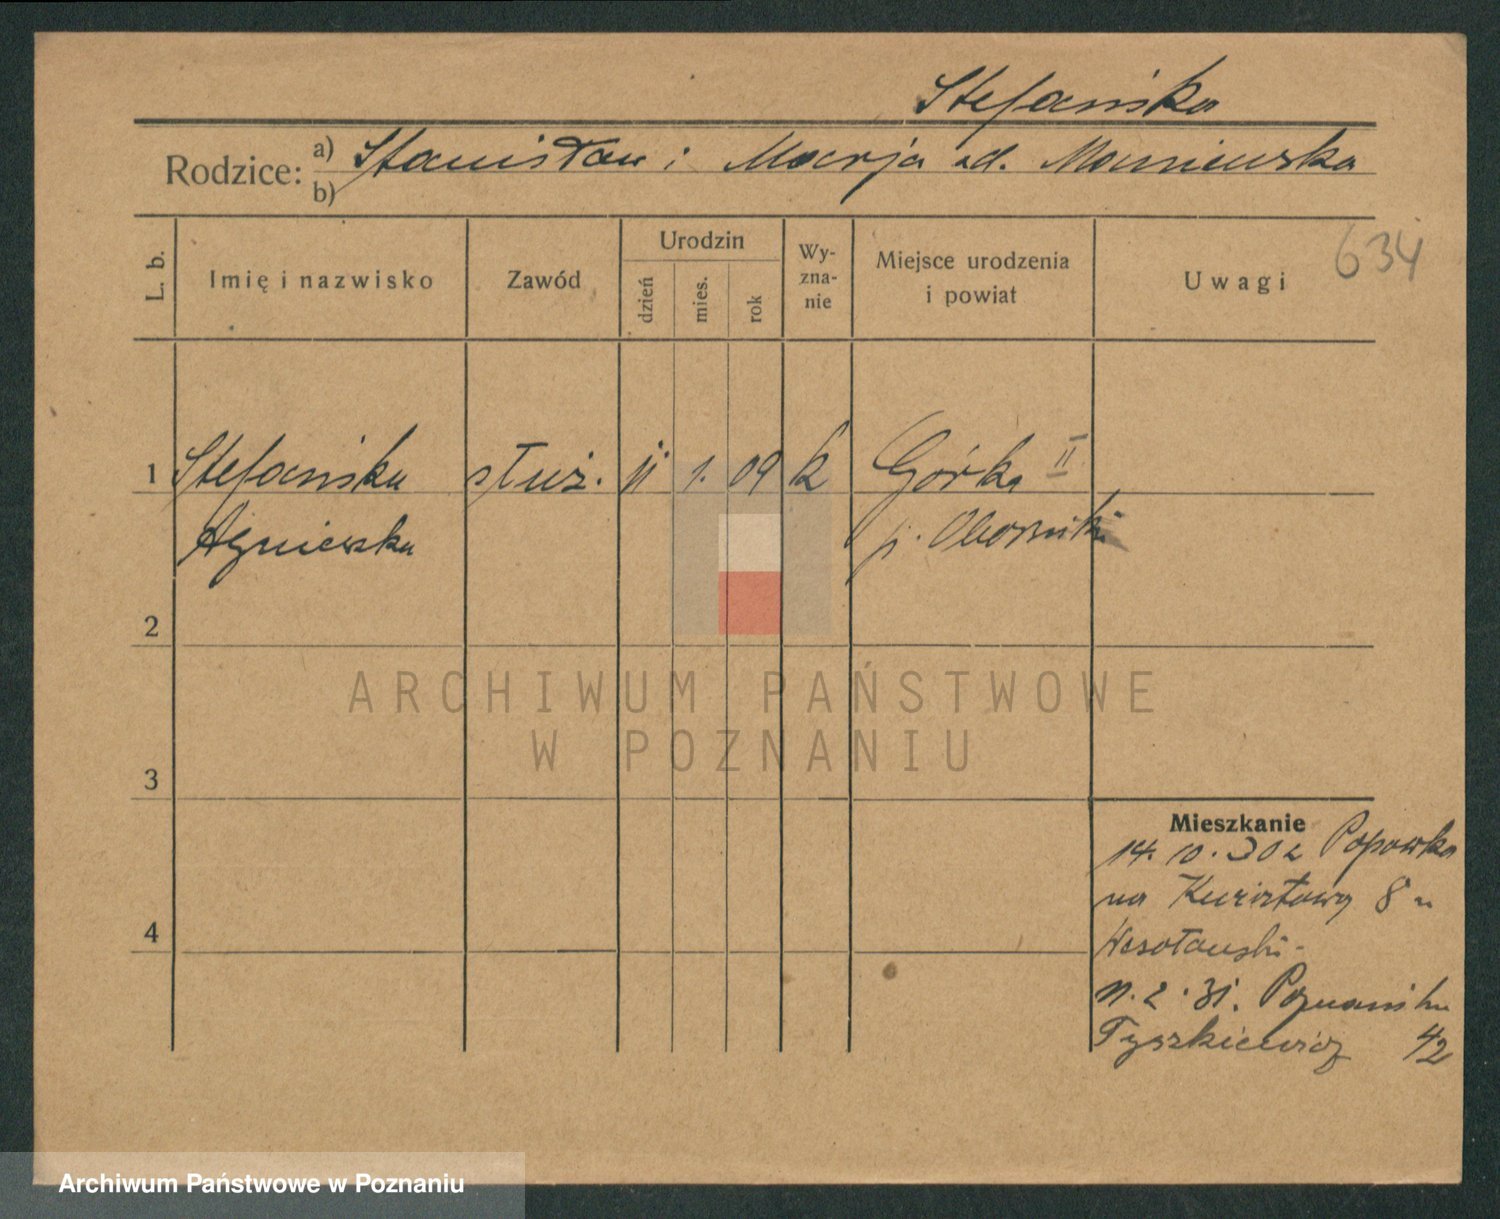 Stefańska
Rodzice: a) Stanisław i Marja ud. Maniewska
b)
L. b.
Imię i nazwisko
Zawód
Urodzin
dzień
mies.
rok
Wy-
zna-
nie
Miejsce urodzenia
i powiat
Uwagi
634
1 Stefańska służ. 11 1. 09 k Górka II
Agnieszka p. Oborniki
2
3
4
ARCHIWUM PAŃSTWOWE
W POZNANIU
Mieszkanie
14. 10. 30 z Popówka
na 8 u
11. 2. 31.
Tyszkiewicz 4/2
Archiwum Państwowe w Poznaniu